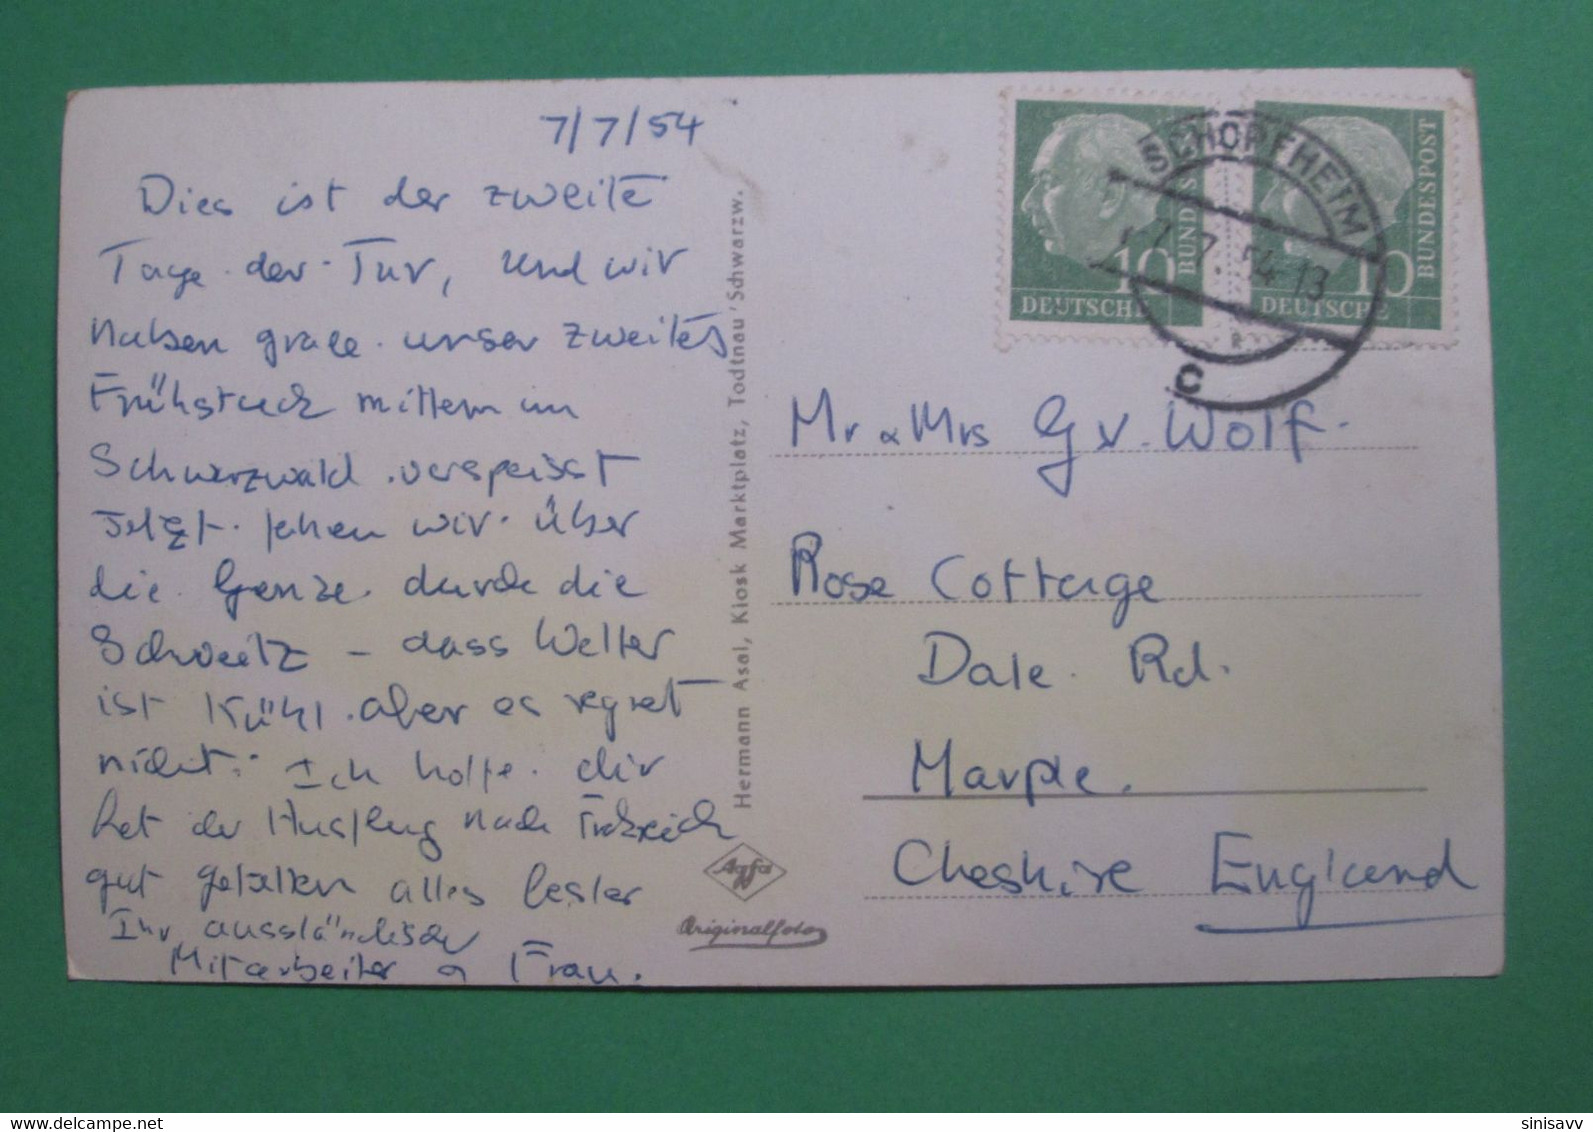 7/7/54
Dies ist der zweite
Tage der Tur, und wir
haben grade unser zweites
Frühstuck mittern im
Schwarzwald verspeisst
Jetzt fahen wir über
die Genze durch die
Schweitz - dass Wetter
ist Kühl aber es regnet
nicht. Ich hoffe dir
hat der Ausflug nach
gut gefallen alles bester
Ihr ausländischer
Mitarbeiter & Frau.
Hermann Asal, Kiosk Marktplatz, Todtnau/Schwarzw.
Agfa
Originalfoto
10
DEUTSCHE
BUNDESPOST
10
DEUTSCHE
BUNDESPOST
SCHOPFHEIM
7.7.54-13
c
Mr & Mrs G v. Wolf.
Rose Cottage
Dale Rd.
Marple.
Cheshire England
www.delcampe.net
sinisavv